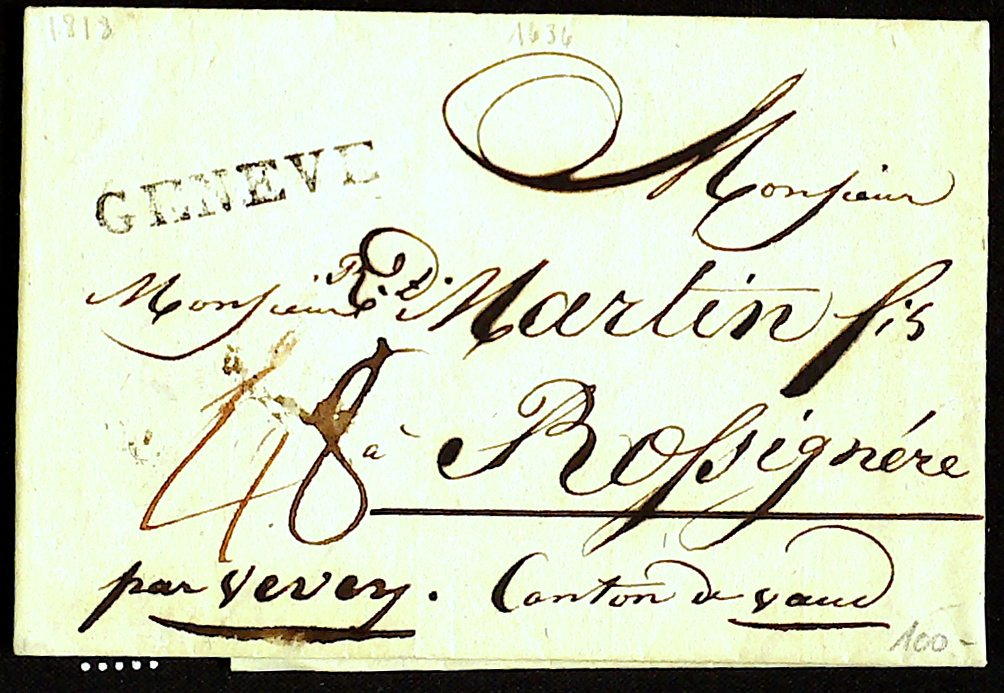 1818 1636
GENEVE
Monsieur
Monsieur R. D. Martin fis
48
à Rossignére
par vevey. Canton de vaud
100-